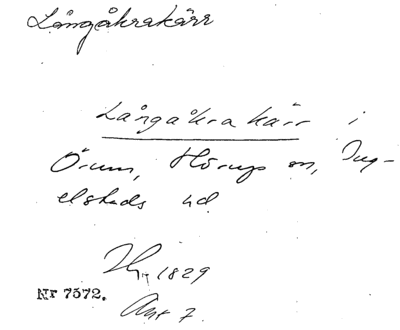 Långåkrakärr
Långåkra kärr i
Örum, Hörups sn, Ing-
elstads hd
Hy 1829
Nr 7572.
Akt 7